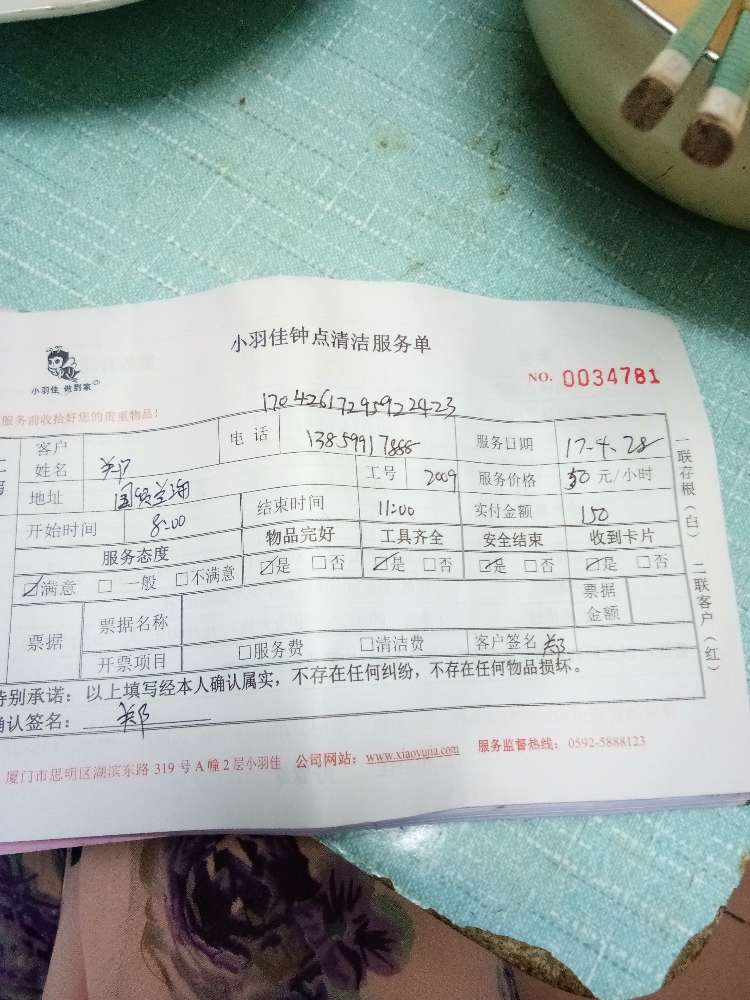 小羽佳钟点清洁服务单
小羽佳 做到家
NO. 0034781
服务前收拾好您的贵重物品!
17042617295922423
客户姓名 郑 电话 13859917888 服务日期 17.4.28
地址 国贸蓝海 工号 2009 服务价格 50 元/小时
开始时间 8:00 结束时间 11:00 实付金额 150
服务态度 物品完好 工具齐全 安全结束 收到卡片
☑满意 □一般 □不满意 ☑是 □否 ☑是 □否 ☑是 □否 ☑是 □否
票据 票据名称 票据金额
开票项目 □服务费 □清洁费 客户签名 郑
特别承诺:以上填写经本人确认属实,不存在任何纠纷,不存在任何物品损坏。
确认签名: 郑
厦门市思明区湖滨东路 319 号 A 幢 2 层小羽佳 公司网站:www.xiaoyujia.com 服务监督热线:0592-5888123
一联存根(白) 二联客户(红)